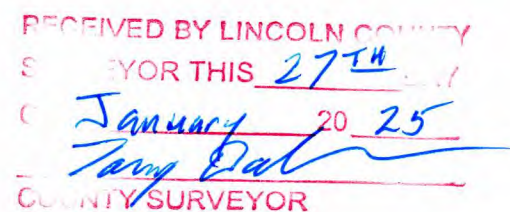 RECEIVED BY LINCOLN COUNTY
SURVEYOR THIS 27TH DAY
O January 20 25
COUNTY SURVEYOR